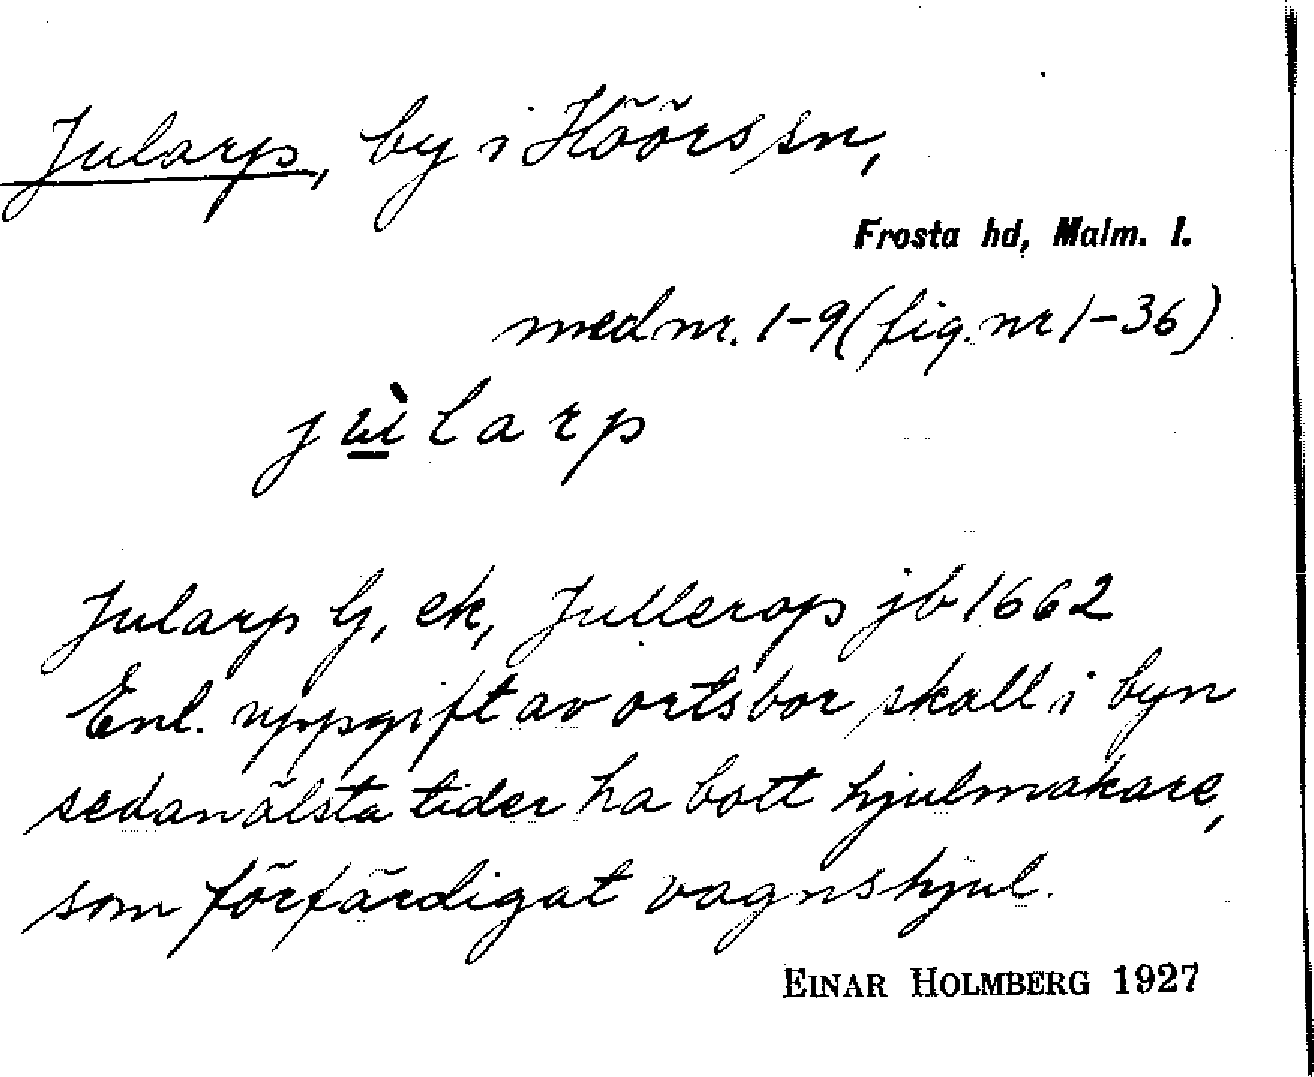 Jularp, by i Höörs sn,
Frosta hd, Malm. l.
med nr. 1-9 (fig. nr 1-36)
jùlarp
Jularp G, ek, Jullerop jb 1662
Enl. uppgift av ortsbor skall i byn
sedan älsta tider ha bott hjulmakare,
som förfärdigat vagnshjul.
EINAR HOLMBERG 1927